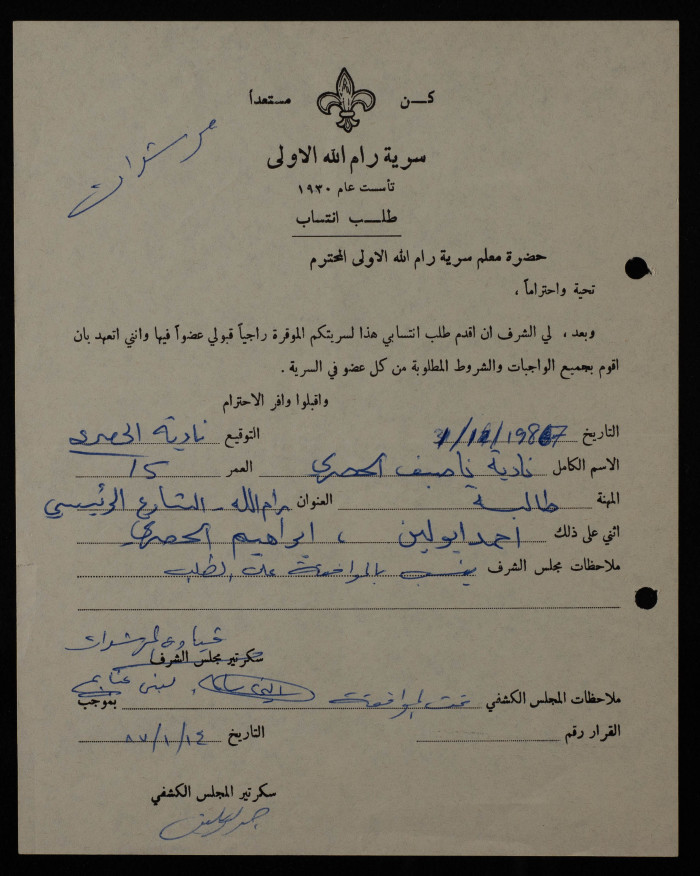 كن مستعدا
مرشدات
سرية رام الله الاولى
تأسست عام ١٩٣٠
طلب انتساب
حضرة معلم سرية رام الله الاولى المحترم
تحية واحتراماً ،
وبعد ، لي الشرف ان اقدم طلب انتسابي هذا لسريتكم الموقرة راجياً قبولي عضواً فيها وانني اتعهد بان
اقوم بجميع الواجبات والشروط المطلوبة من كل عضو في السرية .
واقبلوا وافر الاحترام
التاريخ 1987 التوقيع نادية الحصري
الاسم الكامل نادية ناصيف الحصري العمر 15
المهنة طالبة العنوان رام الله - الشارع الرئيسي
اثني على ذلك احمد ابولبن ، ابراهيم الحصري
ملاحظات مجلس الشرف ينسب بالموافقة على الطلب
المرشدات
سكرتير مجلس الشرف
ملاحظات المجلس الكشفي تمت الموافقة لبنى بموجب
القرار رقم التاريخ ٨٧/١/١٤
سكرتير المجلس الكشفي